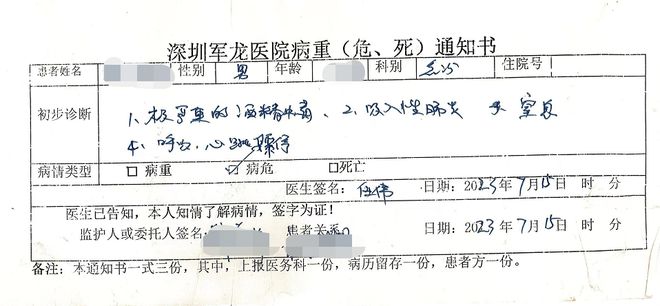 深圳军龙医院病重（危、死）通知书
患者姓名 性别 男 年龄 科别 急诊 住院号
初步诊断 1、极严重的酒精中毒、2、吸入性肺炎 3、窒息
4、呼吸、心跳骤停
病情类型 □ 病重 ☑ 病危 □死亡
医生签名：伍伟 日期：2023年7月15日 时 分
医生已告知，本人知情了解病情，签字为证！
监护人或委托人签名： 患者关系： 日期：2023年7月15日 时 分
备注：本通知书一式三份，其中，上报医务科一份，病历留存一份，患者方一份。